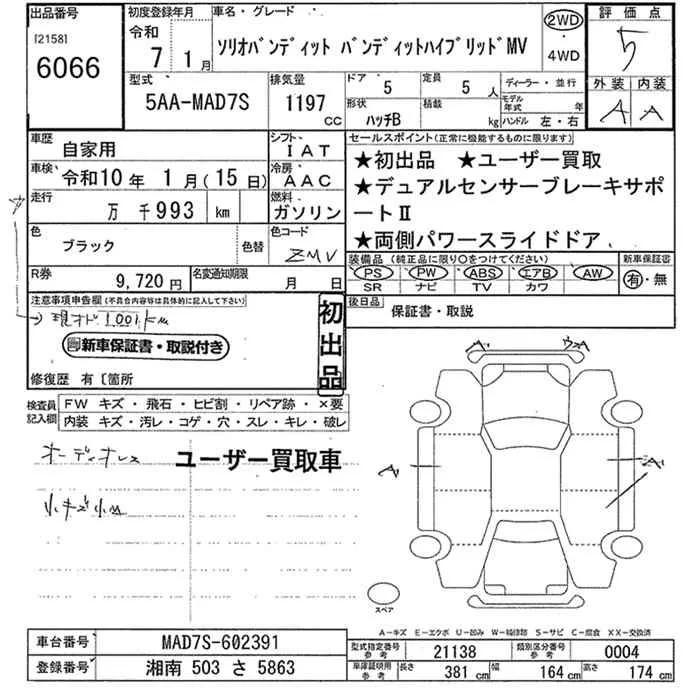 出品番号
[2158]
6066
初度登録年月
令和
7 1月
車名・グレード
ソリオバンディット バンディットハイブリッドMV
2WD
・
4WD
評価点
5
外装 内装
A A
型式
5AA-MAD7S
排気量
1197
CC
ドア
5
定員
5 人
形状
ハッチB
積載
kg
ディーラー・並行
モデル
年式 年
ハンドル 左・右
車歴
自家用
シフト
IAT
車検
令和10年 1月(15日)
冷房
AAC
走行
万 千993 km
燃料
ガソリン
色
ブラック
色替
色コード
ZMV
R券
9,720円
名変通知期限
月 日
セールスポイント(正常に機能するものに限ります)
★初出品 ★ユーザー買取
★デュアルセンサーブレーキサポ
ートⅡ
★両側パワースライドドア
装備品 (純正品に限り○をつけてください)
PS PW ABS エアB AW
SR ナビ TV カワ
新車保証書
有・無
後日品
保証書・取説
注意事項申告欄(不具合内容等は具体的に記入して下さい)
→現オド1,001km
新車保証書・取説付き
初出品
修復歴 有〔箇所
検査員
記入欄
FW キズ・飛石・ヒビ割・リペア跡・×要
内装 キズ・汚レ・コゲ・穴・スレ・キレ・破レ
オーディオレス
ユーザー買取車
小キズ小凹
A
A
A
スペア
A-キズ E-エクボ U-凹み W-補修跡 S-サビ C-腐食 XX-交換済
車台番号
MAD7S-602391
登録番号
湘南 503 さ 5863
型式指定番号
参考
21138
類別区分番号
参考
0004
車庫証明用
参考
長さ 381cm 幅 164cm 高さ 174cm